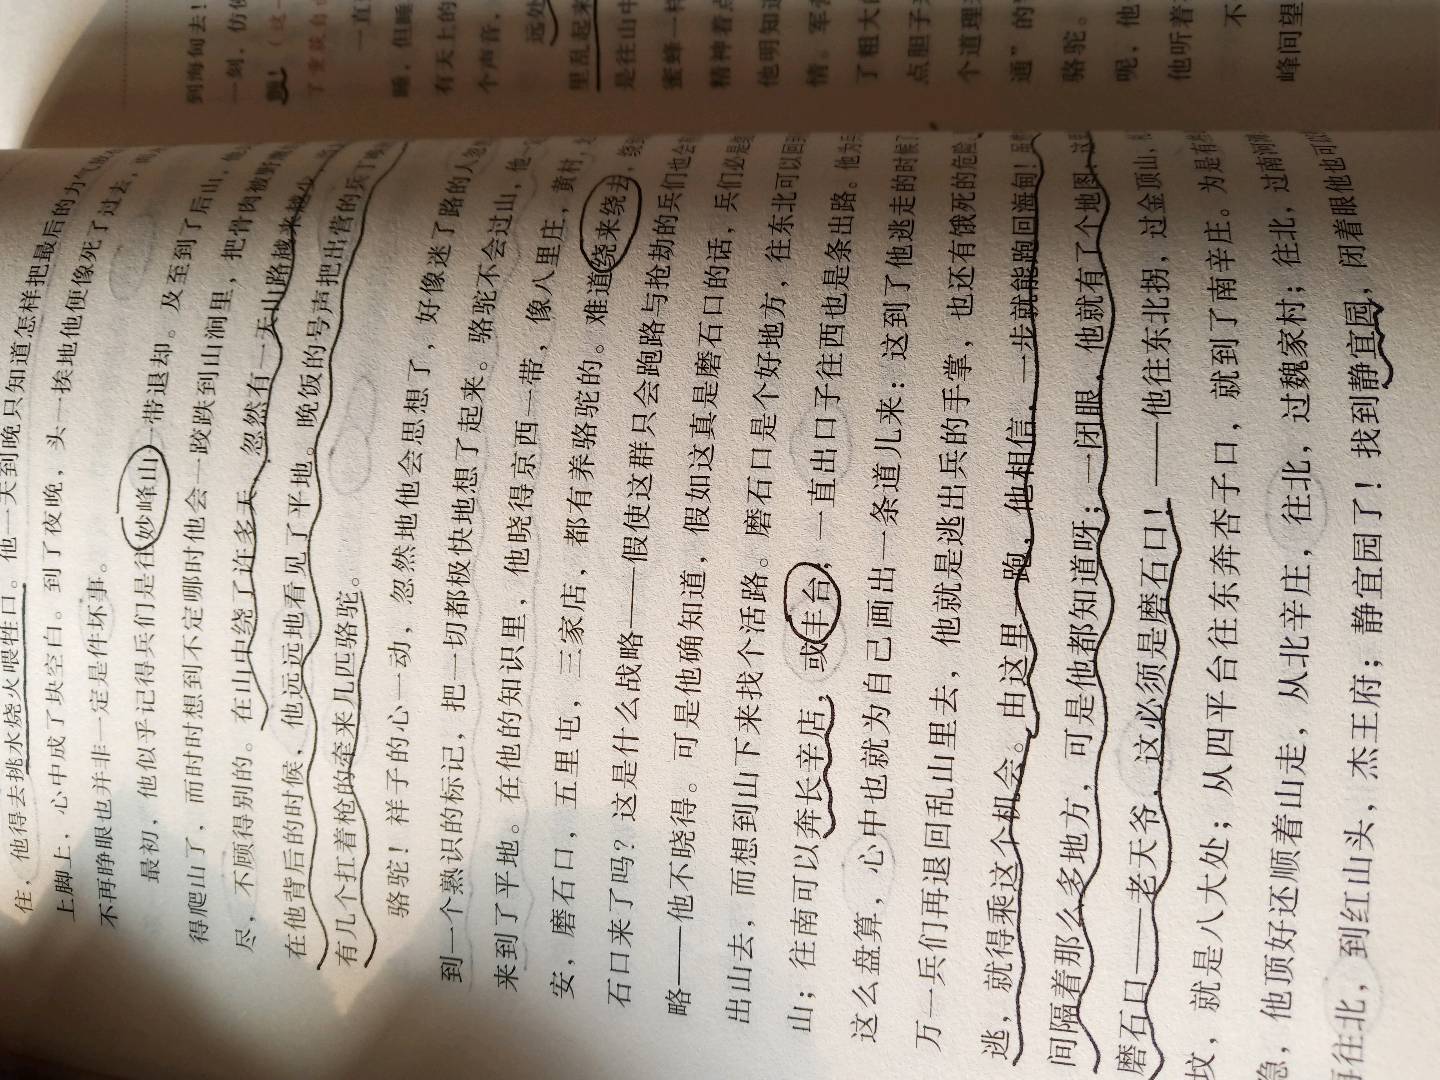 住，他得去挑水烧火喂牲口。他一天到晚只知道怎样把最后的力气放
上脚上，心中成了块空白。到了夜晚，头一挨地他便像死了过去，
不再睁眼也并非一定是件坏事。
最初，他似乎记得兵们是往妙峰山一带退却。及至到了后山，
得爬山了，而时时想到不定哪时他会一跤跌到山涧里，把骨肉被野鹰
尽，不顾得别的。在山中绕了许多天，忽然有一天山路越来越少，
在他背后的时候，他远远地看见了平地。晚饭的号声把出营的兵丁唤
有几个扛着枪的牵来几匹骆驼。
骆驼！祥子的心一动，忽然地他会思想了，好像迷了路的人忽
到一个熟识的标记，把一切都极快地想了起来。骆驼不会过山，他一
来到了平地。在他的知识里，他晓得京西一带，像八里庄，黄村，
安，磨石口，五里屯，三家店，都有养骆驼的。难道绕来绕去，绕
石口来了吗？这是什么战略——假使这群只会跑路与抢劫的兵们也会
略——他不晓得。可是他确知道，假如这真是磨石口的话，兵们必是
出山去，而想到山下来找个活路。磨石口是个好地方，往东北可以回
山；往南可以奔长辛店，或丰台；一直出口子往西也是条出路。他为
这么盘算，心中也就为自己画出一条道儿来：这到了他逃走的时候了
万一兵们再退回乱山里去，他就是逃出兵的手掌，也还有饿死的危险
逃，就得乘这个机会。由这里一跑，他相信，一步就能跑回海甸！虽
间隔着那么多地方，可是他都知道呀；一闭眼，他就有了个地图：这
磨石口——老天爷，这必须是磨石口！——他往东北拐，过金顶山，
坟，就是八大处；从四平台往东奔杏子口，就到了南辛庄。为是有
急，他顶好还顺着山走，从北辛庄，往北，过魏家村；往北，过南河
再往北，到红山头，杰王府；静宜园了！找到静宜园，闭着眼他也可以
到海甸去！
一剑，仿佛
（这一
一直
睡，但睡
有天上的
个声音，
远处
里乱起来
是往山中
蜜蜂一样
精神着点
他明知道
情。军
了粗大的
点胆子
个道理
通”的
骆驼。
呢，他
他听着
不
峰间望